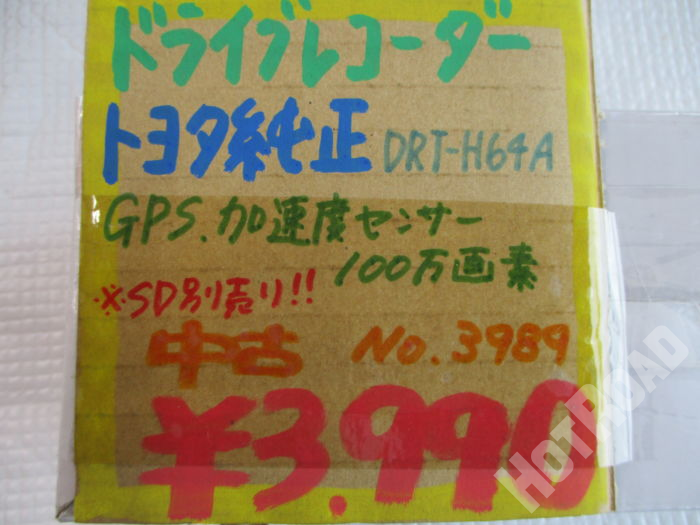 ドライブレコーダー
トヨタ純正 DRT-H64A
GPS.加速度センサー
100万画素
※SD別売り!!
中古 No.3989
¥3.990
HOTROAD